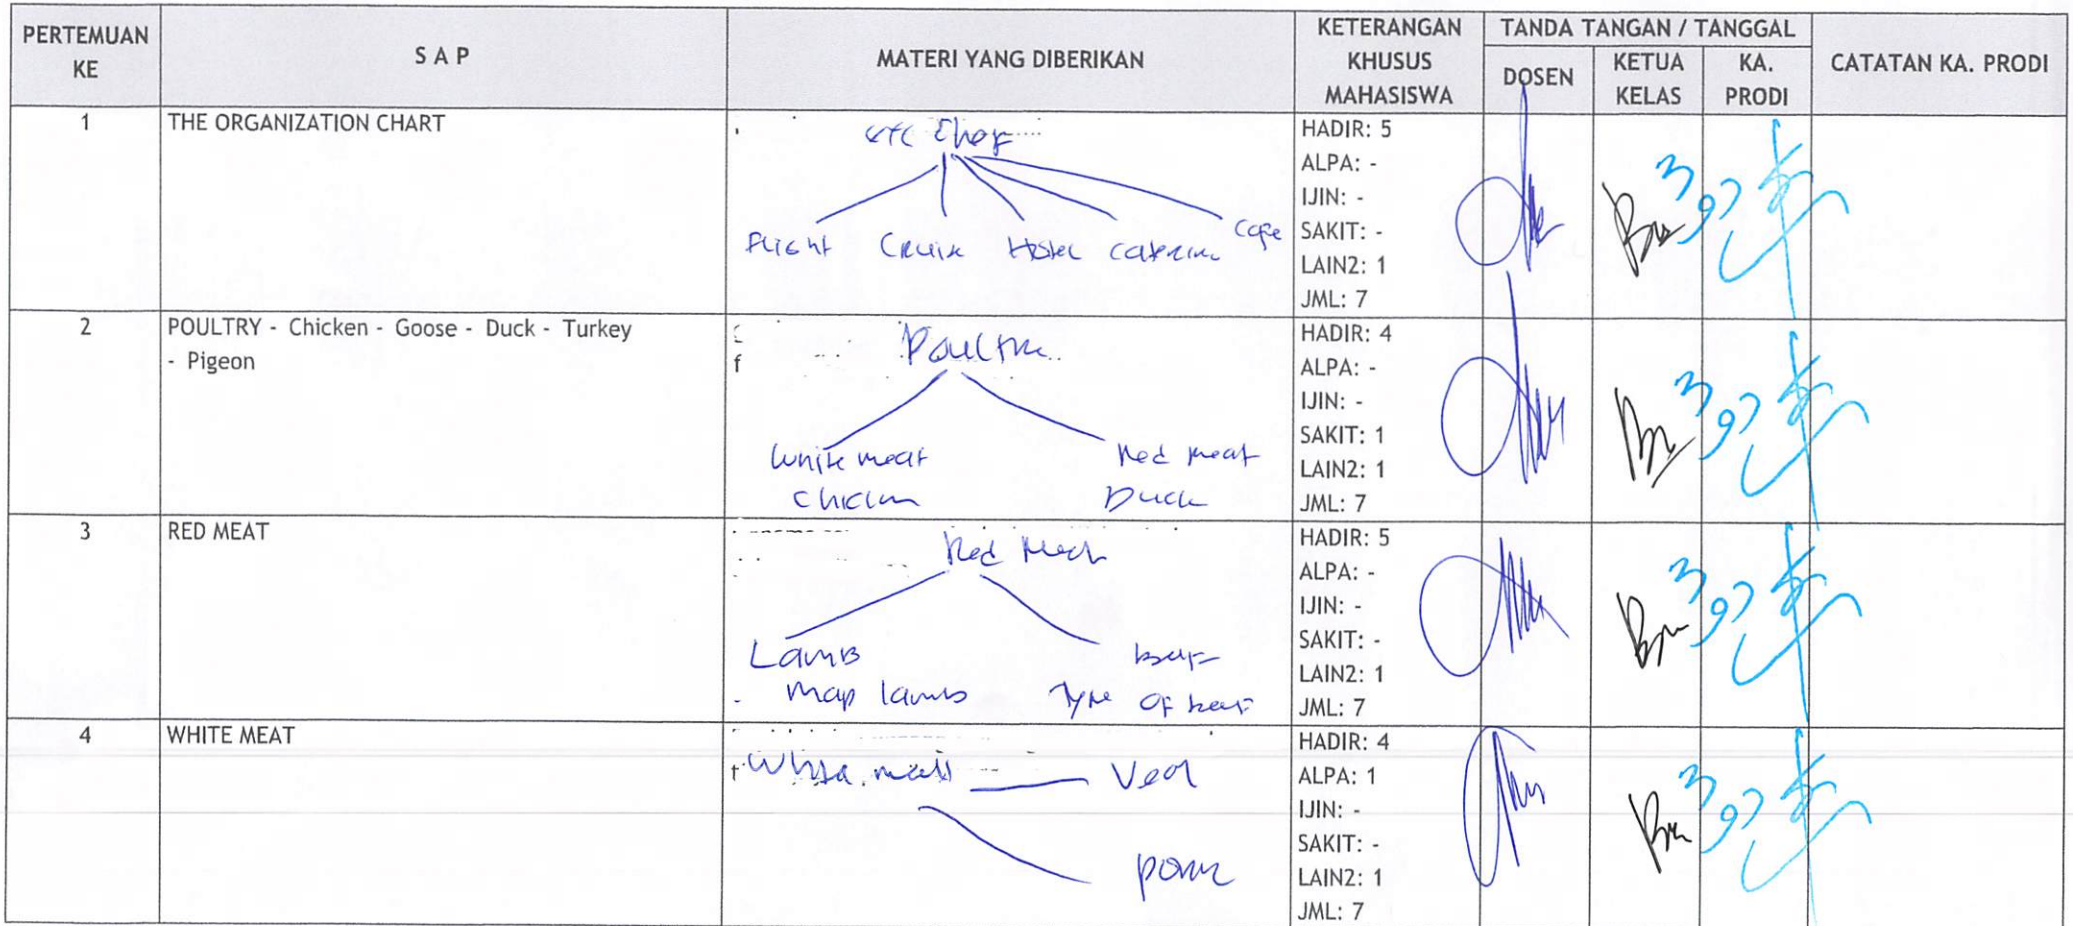 PERTEMUAN KE
S A P
MATERI YANG DIBERIKAN
KETERANGAN KHUSUS MAHASISWA
TANDA TANGAN / TANGGAL
DOSEN
KETUA KELAS
KA. PRODI
CATATAN KA. PRODI
1
THE ORGANIZATION CHART
Chef
Flight Cruise Hotel Catering Cafe
HADIR: 5
ALPA: -
IJIN: -
SAKIT: -
LAIN2: 1
JML: 7
2
POULTRY - Chicken - Goose - Duck - Turkey
- Pigeon
Poultry
White meat Red Meat
Chicken Duck
HADIR: 4
ALPA: -
IJIN: -
SAKIT: 1
LAIN2: 1
JML: 7
3
RED MEAT
Red Meat
Lamb beef
Map lamb Type of beef
HADIR: 5
ALPA: -
IJIN: -
SAKIT: -
LAIN2: 1
JML: 7
4
WHITE MEAT
White meat Veal
Pork
HADIR: 4
ALPA: 1
IJIN: -
SAKIT: -
LAIN2: 1
JML: 7